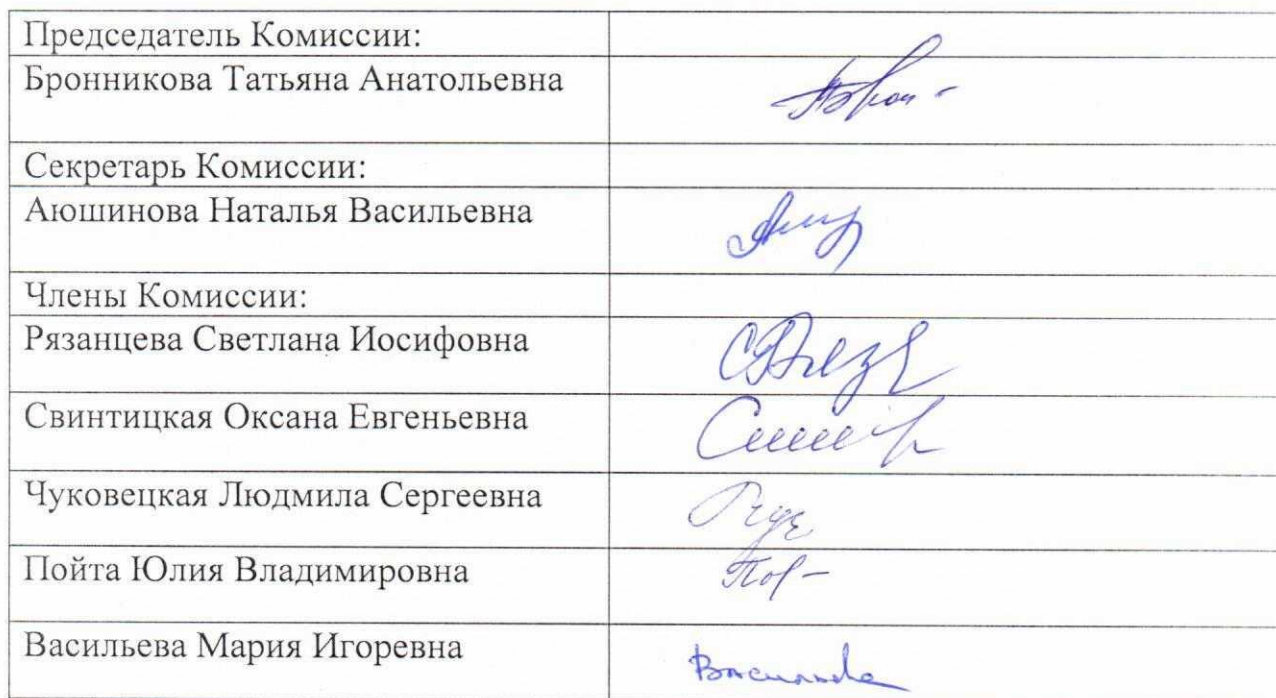 Председатель Комиссии:
Бронникова Татьяна Анатольевна
Секретарь Комиссии:
Аюшинова Наталья Васильевна
Члены Комиссии:
Рязанцева Светлана Иосифовна
Свинтицкая Оксана Евгеньевна
Чуковецкая Людмила Сергеевна
Пойта Юлия Владимировна
Васильева Мария Игоревна